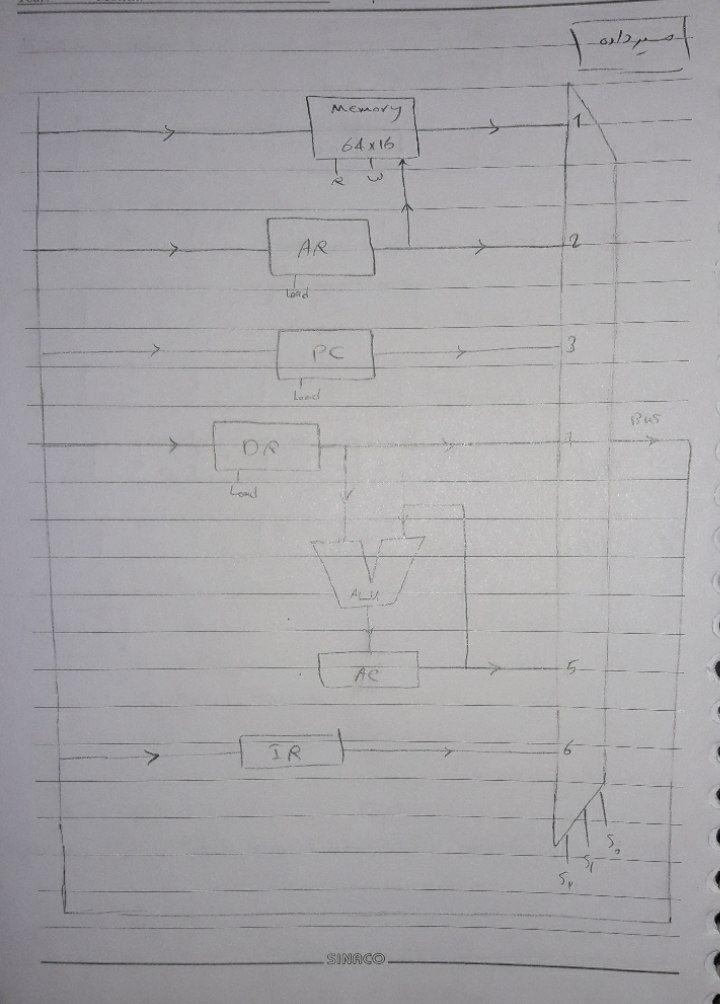 مسیر داده
Memory
64x16
R W
1
AR
Load
2
PC
Load
3
DR
Load
Bus
ALU
AC
5
IR
6
S₂ S₁ S₀
SINACO